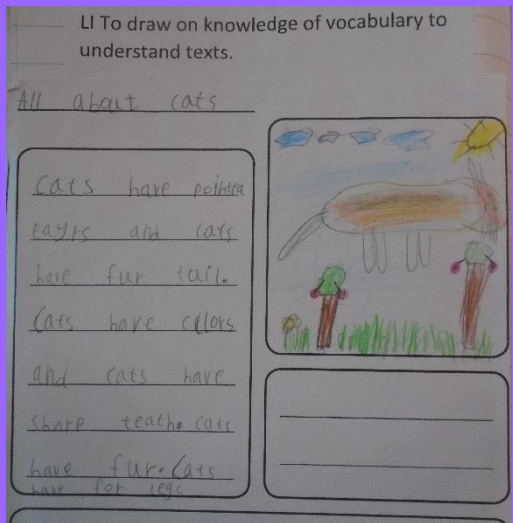 LI To draw on knowledge of vocabulary to
understand texts.
All about cats
Cats have pointea
eayrs and cats
have fur tail.
Cats have cllors
and cats have
sharp teath. cats
have fur. Cats
have for legs